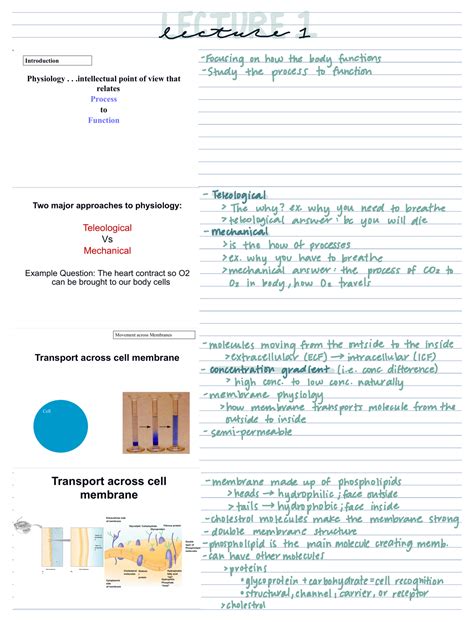 LECTURE 1
lecture 1
Introduction
Physiology . . .intellectual point of view that
relates
Process
to
Function
-Focusing on how the body functions
-Study the process to function
Two major approaches to physiology:
Teleological
Vs
Mechanical
Example Question: The heart contract so O2
can be brought to our body cells
- Teleological
> The why? ex. why you need to breathe
> teleological answer: bc you will die
- mechanical
> is the how of processes
> ex. why you have to breathe
> mechanical answer: the process of CO2 to
O2 in body, how O2 travels
Movement across Membranes
Transport across cell membrane
Cell
- molecules moving from the outside to the inside
> extracellular (ECF) → intracellular (ICF)
- concentration gradient (i.e. conc difference)
> high conc. to low conc. naturally
- membrane physiology
> how membrane transports molecule from the
outside to inside
- semi-permeable
Transport across cell
membrane
- membrane made up of phospholipids
> heads → hydrophilic; face outside
> tails → hydrophobic; face inside
- cholestrol molecules make the membrane strong
- double membrane structure
- phospholipid is the main molecule creating memb.
- can have other molecules
> proteins
• glycoprotein + carbohydrate = cell recognition
• structural, channel, carrier, or receptor
> cholestrol